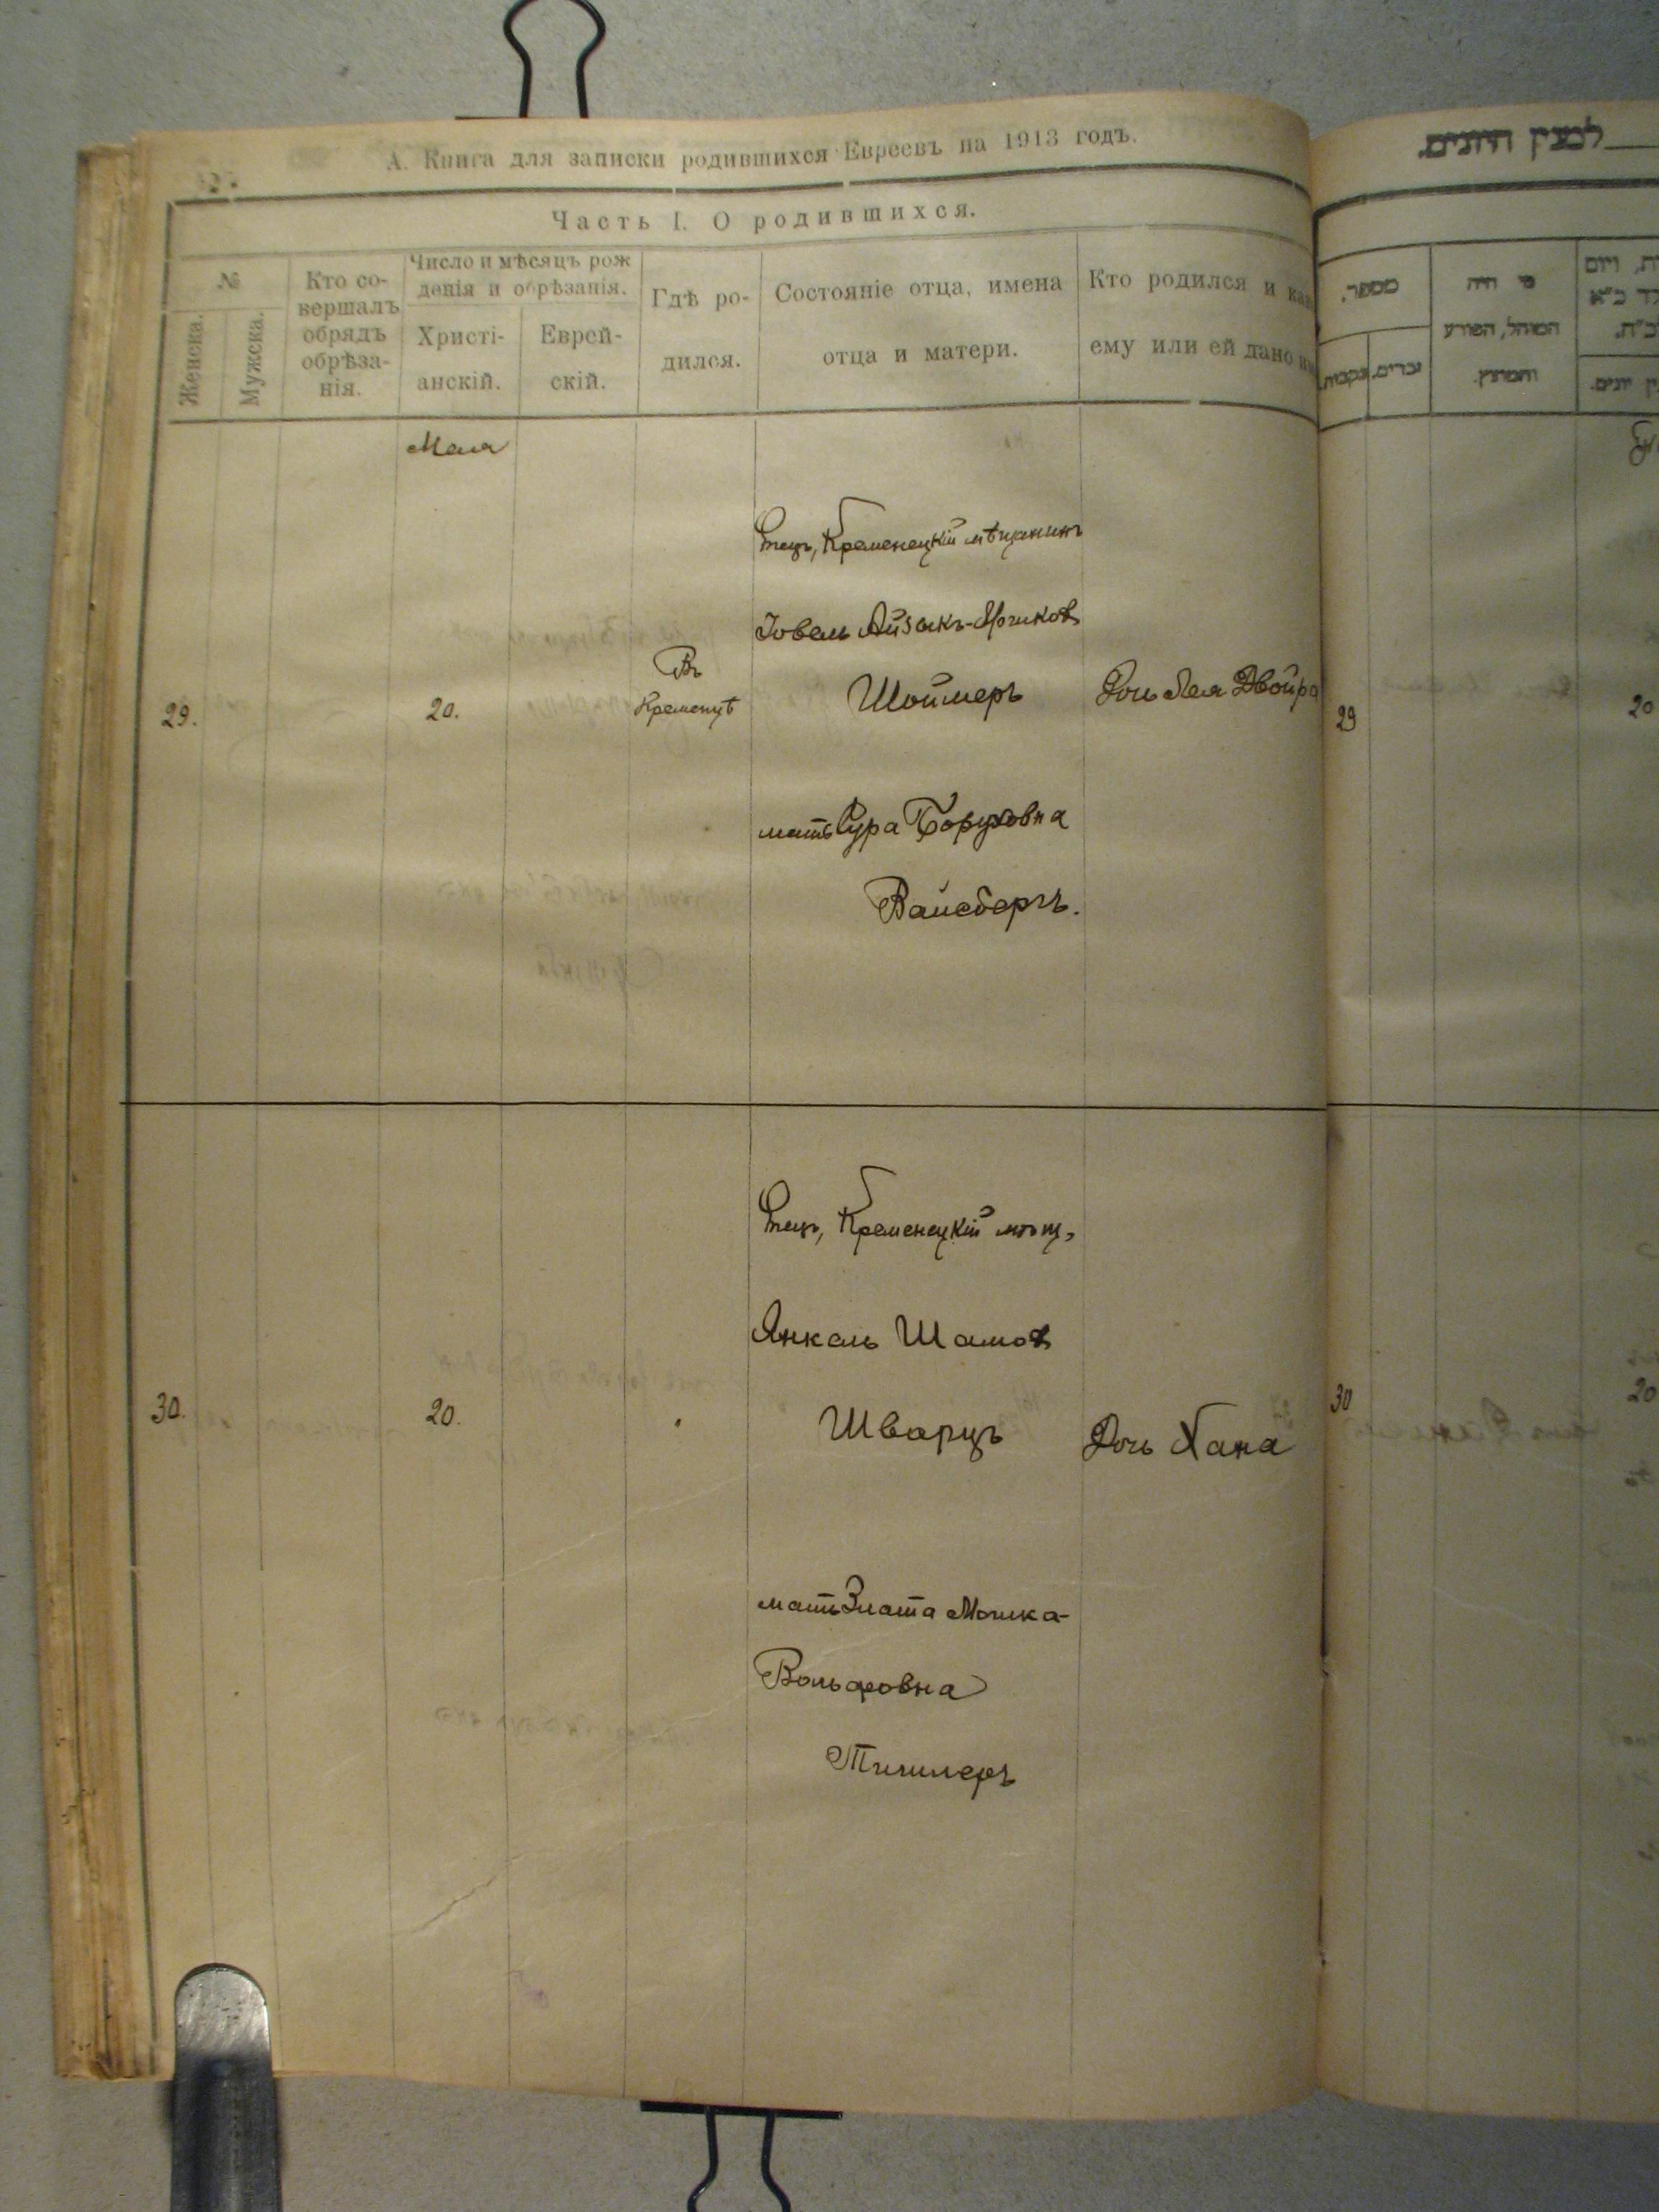 А. Книга для записки родившихся Евреевъ на 1913 годъ.
Часть I. О родившихся.
№
Женска.
Мужска.
Кто со-
вершалъ
обрядъ
обрѣза-
нія.
Число и мѣсяцъ рож
денія и обрѣзанія.
Христі-
анскій.
Еврей-
скій.
Гдѣ ро-
дился.
Состояніе отца, имена
отца и матери.
Кто родился и как
ему или ей дано им
Мая
29.
20.
Въ
Кременцѣ
Отецъ, Кременецкій мѣщанинъ
Іовель Айзикъ-Ициковъ
Шоймеръ
мать Сура Боруховна
Вайсбергъ.
Дочь Лея Двойра
30.
20.
Отецъ, Кременецкій мѣщ.
Янкель Шамов
Шварцъ
мать Злата Мошка-
Вольфовна
Тишлеръ
Дочь Хана
לבצין היונים.
מספר.
נקבות.
זכרים.
מי היה
המוהל, הפורע
והמוצץ.
29
20
30
20